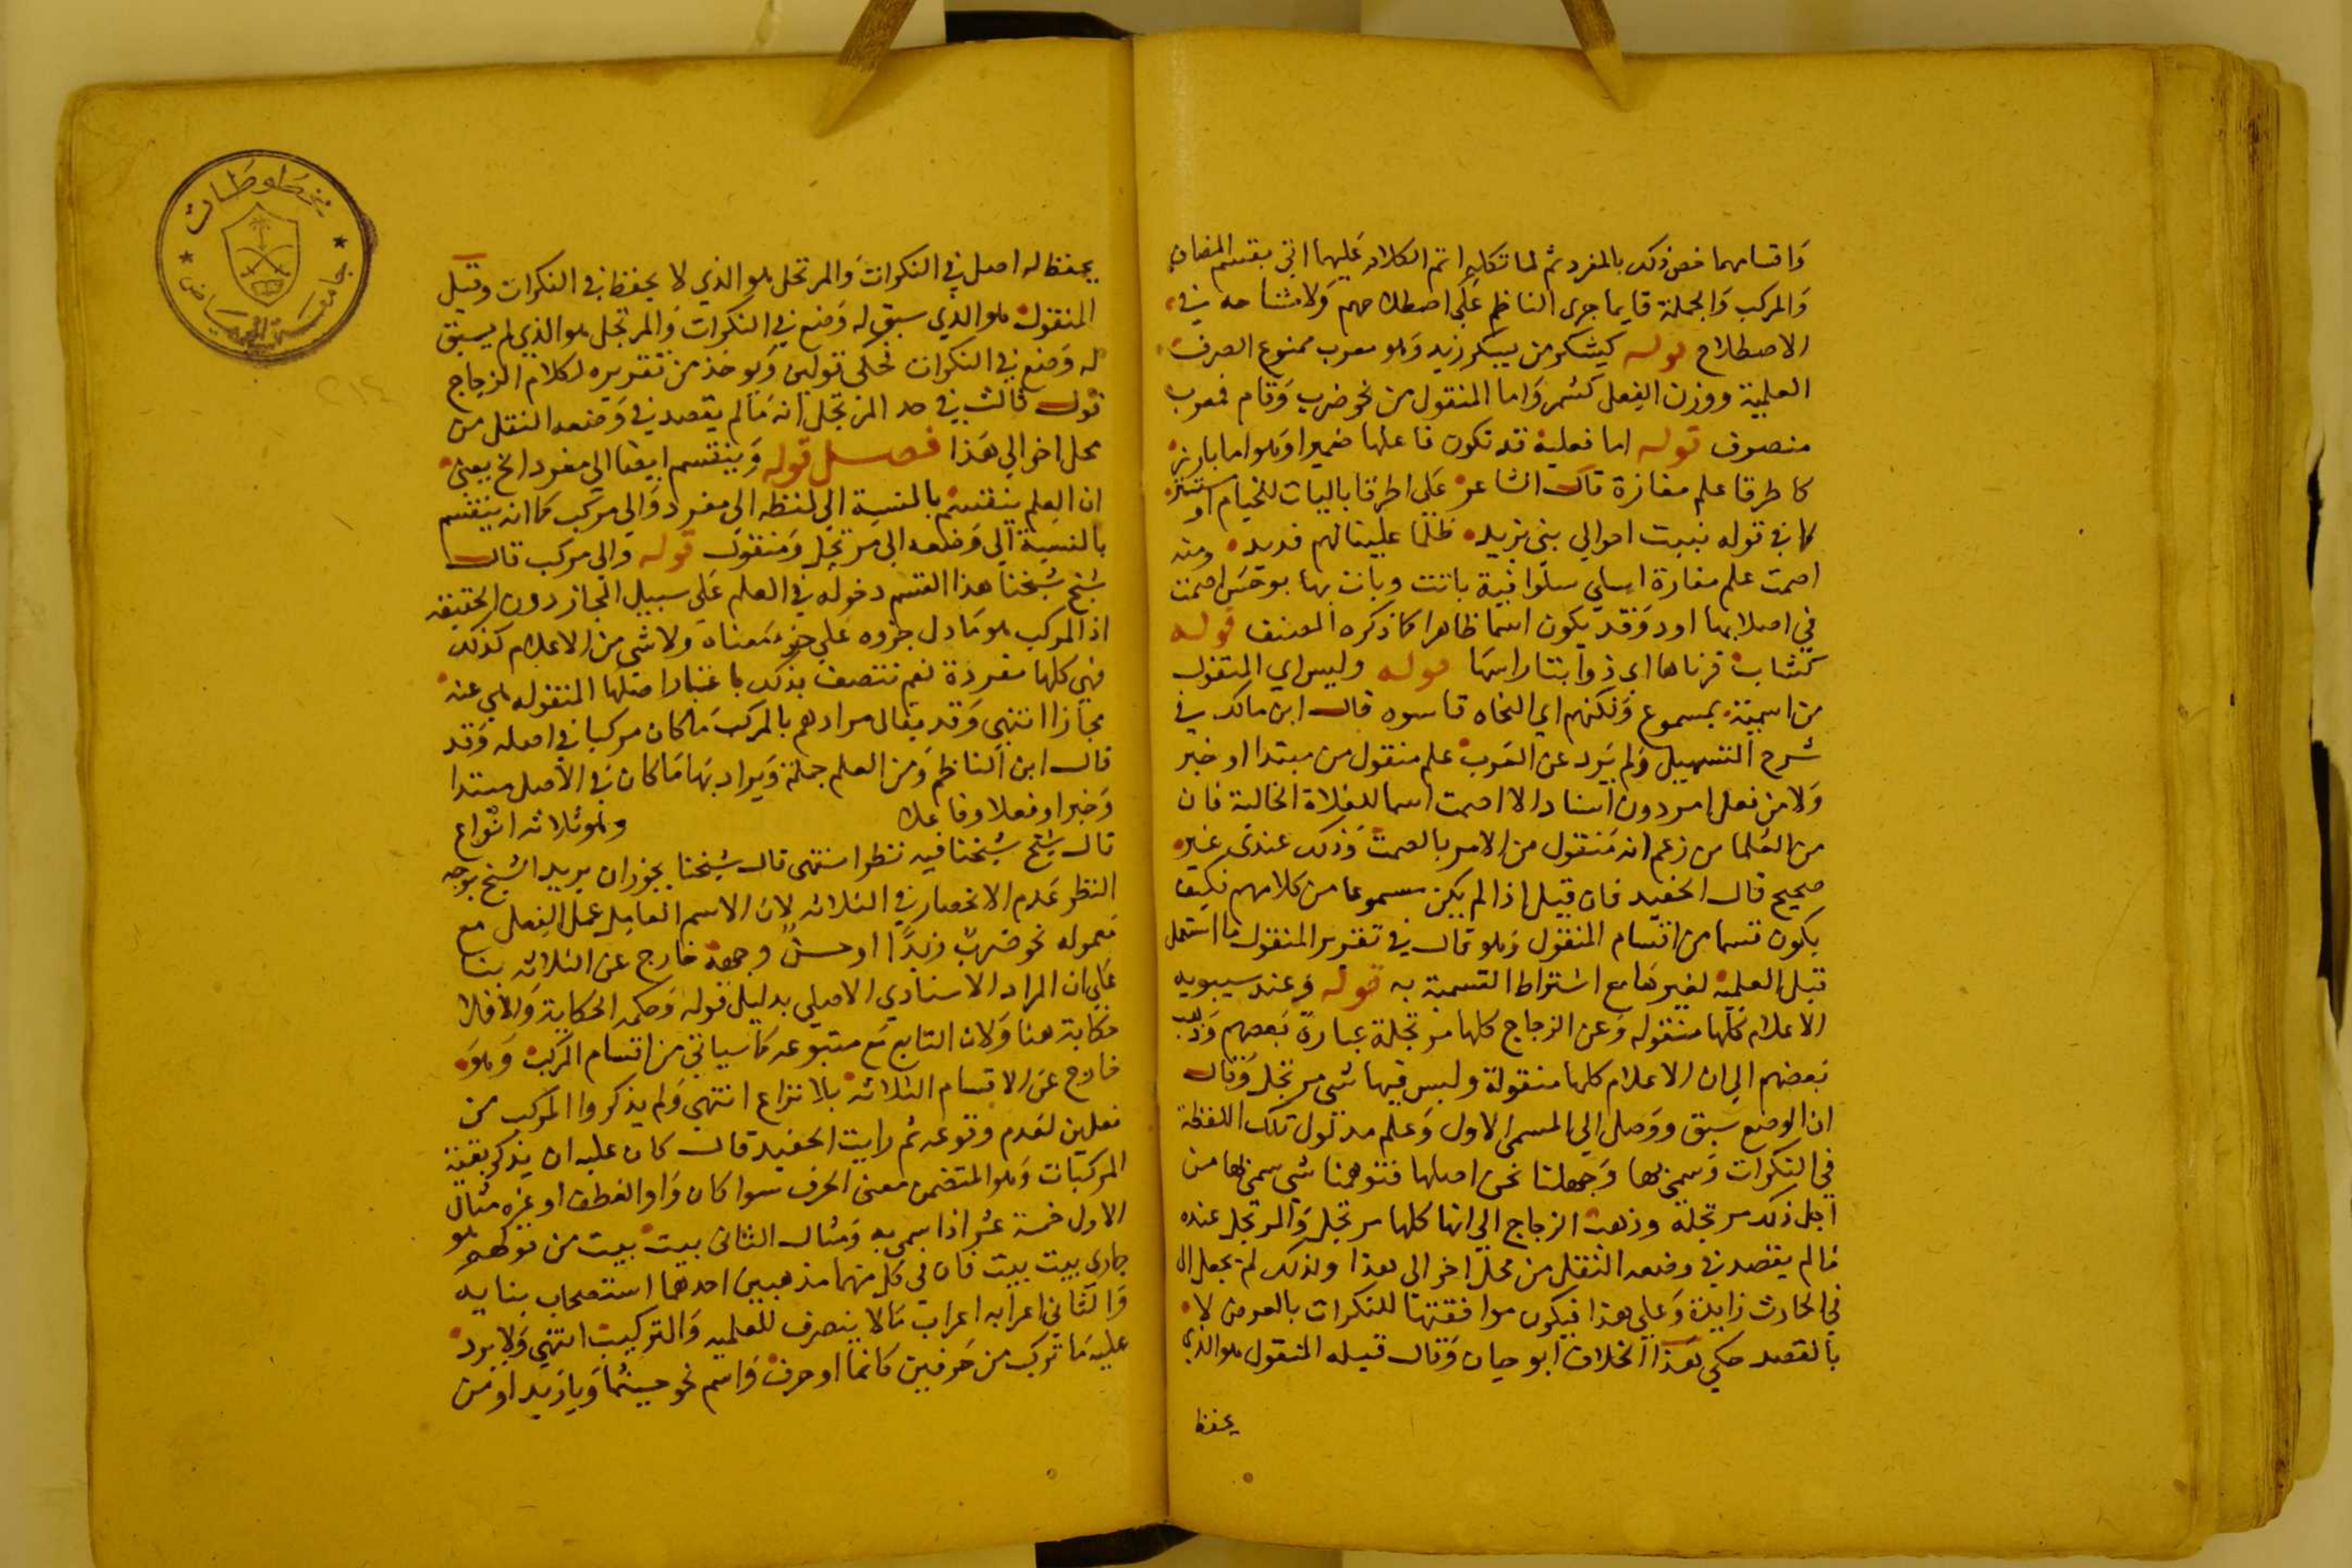 واقسامهما فخص ذلك بالمفرد ثم لما تكلم اتم الكلام عليهما اتى بقسم المضاف
والمركب والجملة قايما جرى الناظم على اصطلاحهم ولا مشاحة في
الاصطلاح قوله كيشكر من يشكر زيد وهو معرب ممنوع الصرف
العلمية ووزن الفعل كشمر واما المنقول من نحو ضرب وقام فمعرب
منصرف قوله اما فعلية قد تكون فاعلها ضميرا وهو اما بارز
كاطرقا علم مفازة قال الشاعر على اطرقا باليات للخيام او مستتر
كما في قوله نبيت اخوالي بني يزيد ظلما علينا لهم فديد ومنه
اصمت علم مفازة اسلي سلوقية باتت وبات بها بوحش اصمت
في اصلابها اود وقد يكون اسما ظاهرا كما ذكره المصنف قوله
كشاب قرناها اي ذوابتا راسها قوله وليس اي المنقول
من اسمية بمسموع ولكنهم اي النحاه قاسوه قال ابن مالك في
شرح التسهيل ولم يرد عن العرب علم منقول من مبتدا او خبر
ولا من فعل امر دون اسناد الا اصمت اسما للفلاة الخالية فان
من العلما من زعم انه منقول من الامر بالصمت وذلك عندي غير
صحيح قال الحفيد فان قيل اذا لم يكن مسموعا من كلامهم فكيف
يكون قسما من اقسام المنقول وهو قال في تقرير المنقول ما استعمل
قبل العلمية لغيرها مع اشتراط التسمية به قوله وعند سيبويه
الاعلام كلها منقوله وعن الزجاج كلها مرتجلة عبارة بعضهم وذهب
بعضهم الى ان الاعلام كلها منقولة وليس فيها شي مرتجل وقال
ان الوضع سبق ووصل الى المسمى الاول وعلم مدلول تلك اللفظة
في النكرات وسمي بها وجهلنا نحن اصلها فتوهمنا شي سمي بها من
اجل ذلك مرتجلة وذهب الزجاج الى انها كلها مرتجل والمرتجل عنده
مالم يقصد في وضعه النقل من محل اخر الى هذا ولذلك لم يجعل ال
في الحارث زايدة وعلى هذا فيكون موافقتها للنكرات بالعرض لا
بالقصد حكى هذا الخلاف ابو حيان وقال قيله المنقول هو الذي
يحفظ
يحفظ له اصل في النكرات والمرتجل هو الذي لا يحفظ في النكرات وقيل
المنقول هو الذي سبق له وضع في النكرات والمرتجل هو الذي لم يسبق
له وضع في النكرات فحكى قولين ويوخذ من تقريره لكلام الزجاج
قول ثالث في حد المرتجل انه مالم يقصد في وضعه النقل من
محل اخر الى هذا فصل قوله وينقسم ايضا الى مفرد الخ يعني
ان العلم ينقسم بالنسبة الى لفظه الى مفرد والى مركب كما انه ينقسم
بالنسبة الى وضعه الى مرتجل ومنقول قوله والى مركب قال
شيخ شيخنا هذا القسم دخوله في العلم على سبيل المجاز دون الحقيقه
اذ المركب هو ما دل جزوه على جزء معناه ولا شي من الاعلام كذلك
فهي كلها مفردة نعم تتصف بذلك باعتبار اصلها المنقوله هي عنه
مجازا انتهى وقد يقال مرادهم بالمركب ما كان مركبا في اصله وقد
قال ابن الناظم ومن العلم جملة ويراد بها ما كان في الاصل مبتدا
وخبرا او فعلا وفاعلا وهو ثلاثه انواع
قال شيخ شيخنا فيه نظر انتهى قال شيخنا يجوز ان يريد الشيخ بوجه
النظر عدم الانحصار في الثلاثه لان الاسم العامل عمل الفعل مع
معموله نحو ضرب زيدا او حسن وجهه خارج عن الثلاثه بنا
على ان المراد الاسنادي الاصلي بدليل قوله وحكمه الحكاية والا فلا
حكاية هنا ولان التابع مع متبوعه كما سياتي من اقسام المركب وهو
خارج عن الاقسام الثلاثه بلا نزاع انتهى ولم يذكروا المركب من
فعلين لعدم وقوعه ثم رايت الحفيد قال كان عليه ان يذكر بقية
المركبات وهو المتضمن معنى الحرف سوا كان واو العطف او غيره مثال
الاول خمسة عشر اذا سمي به ومثال الثاني بيت بيت من قولهم هو
جاري بيت بيت فان في كل منهما مذهبين احدهما استصحاب بنايه
والثاني اعرابه اعراب مالا ينصرف للعلميه والتركيب انتهى ولا يرد
عليه ما تركب من حرفين كانما او حرف واسم نحو حيثما ويا زيد او من
مخطوطات
جامعة الرياض
٢١٤